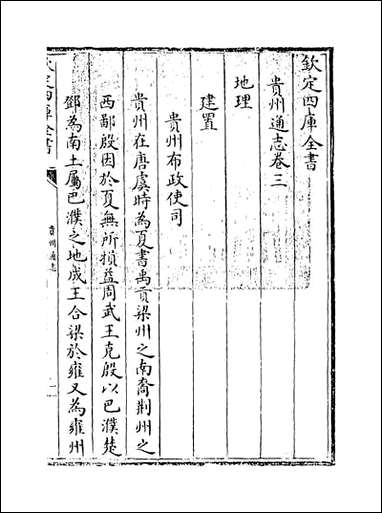 欽定四庫全書
貴州通志卷三
地理
建置
貴州布政使司
貴州在唐虞時為夏書禹貢梁州之南裔荆州之
西鄙殷因於夏無所損益周武王克殷以巴濮楚
鄧為南土屬巴濮之地成王合梁於雍又為雍州
欽定四庫全書
貴州通志
一